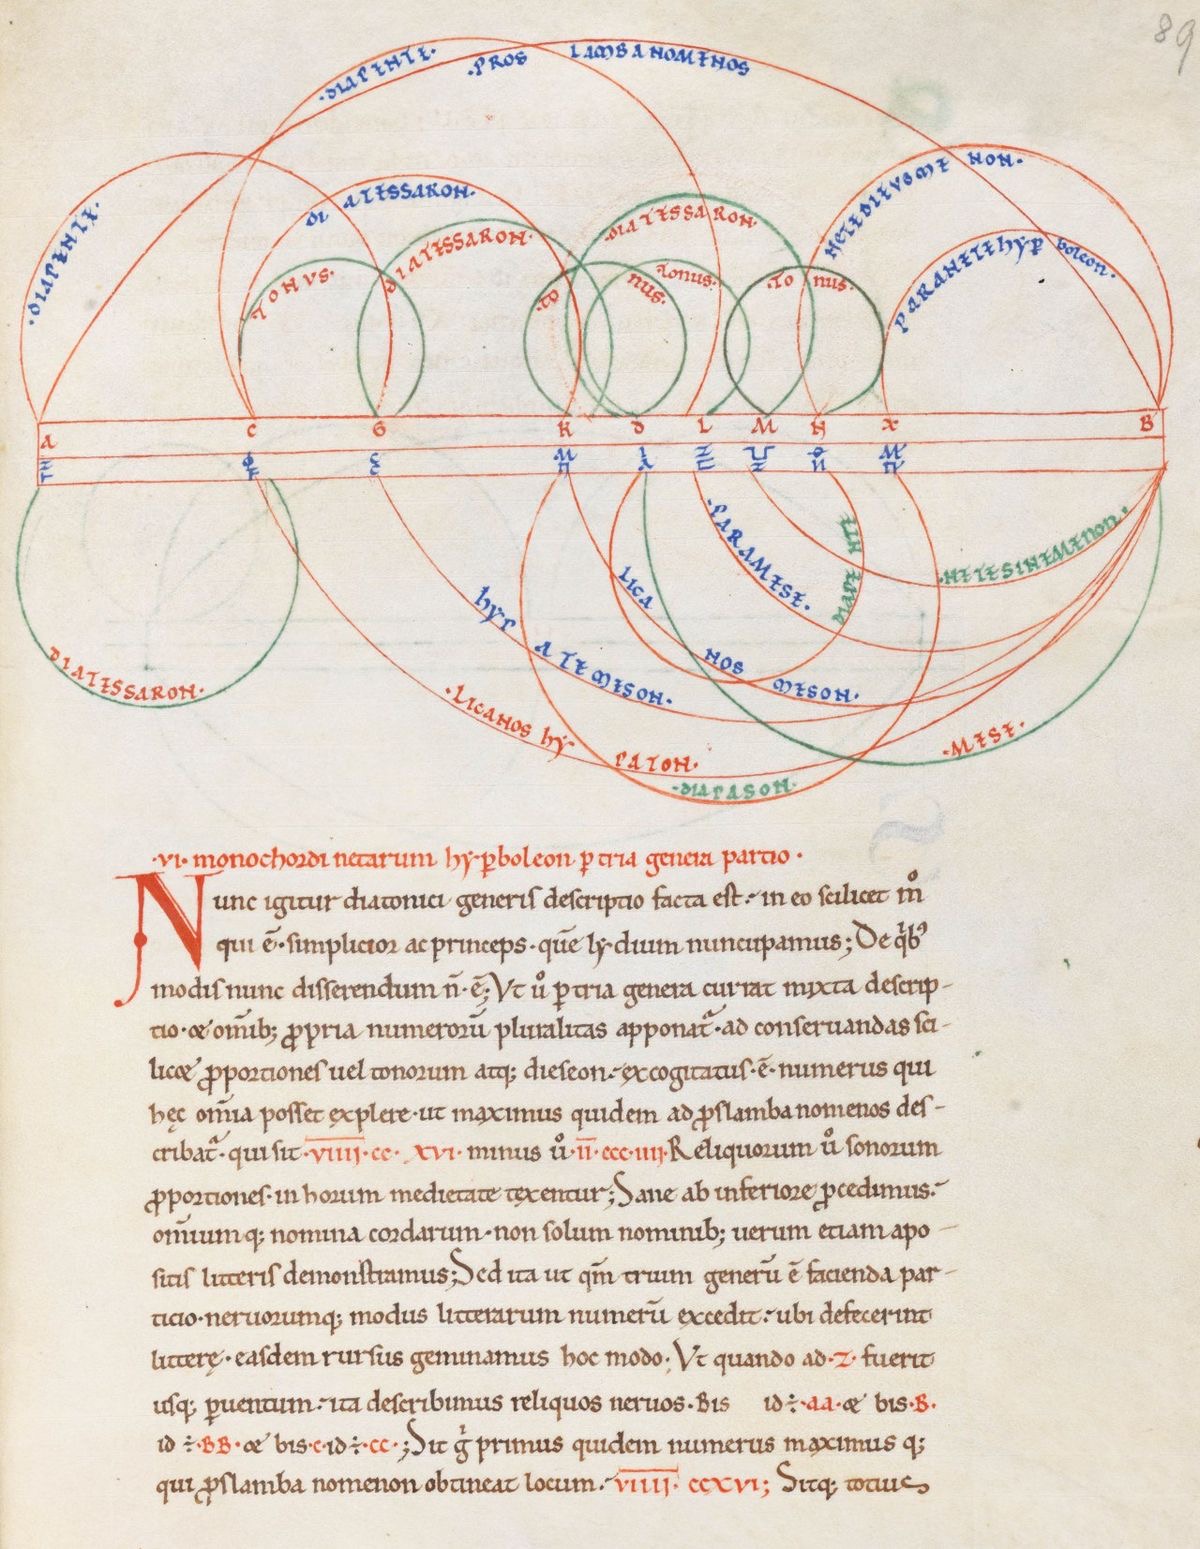 89
·DIAPENTE·
·PROS LAMBANOMENOS
·DIAPENTE·
DIATESSARON·
DIATESSARON·
·DIATESSARON·
NETEDIEUGMENON·
PARANETEhyp boleon·
TONUS·
TO NUS·
TONUS·
·TO NUS·
A C G K D L M N X B
DIATESSARON·
hyp ATEMESON·
·LICANOS hy PATON·
LICA NOS MESON·
·PARAMESE·
DIAPENTE
·NETESINEMENON·
·MESE·
·DIAPASON·
·VI· monochordi netarum hyꝑboleon ꝑ tria genera partio·
Nunc igitur diatonici generis descriptio facta est· in eo scilicet m̊
qui ē· simplicior ac princeps· quē lydium nuncupamus; De q̇bꝯ
modis nunc disserendum n̄· ē; Vt ů ꝑ tria genera currat mixta descrip-
tio· & om̄ib; ꝓpria numerorū pluralitas apponat᷑· ad conseruandas sci-
lic& ꝓportiones uel tonorum atq; dieseon· excogitatus· ē· numerus qui
hęc om̄ia posset explere· ut maximus quidem ad ꝓslambanomenos des-
cribat᷑· qui sit· V̅I̅I̅I̅I̅· CC· XVI· minus ů· I̅I̅· CCC· IIII· Reliquorum ů sonorum
ꝓportiones· in horum medietate texentur; Sane ab inferiore ꝓcedimus·
om̄ium q; nomina cordarum· non solum nominib; uerum etiam apo-
sitis litteris demonstramus; Sed ita ut qm̄ trium generū ē facienda par-
ticio· neruorumq; modus litterarum numerū excedit· ubi defecerint
litterę· easdem rursus geminamus hoc modo· Vt quando ad· Z· fuerit
usq; ꝑuentum· ita describimus reliquos neruos· Bis id ÷· AA· & bis· B·
id ÷· BB· & bis· C· id ÷· CC·; Sit g̊ primus quidem numerus maximus q;
qui ꝓslamba nomenon obtineat locum· V̅I̅I̅I̅I̅· CCXVI; Sitq; totius